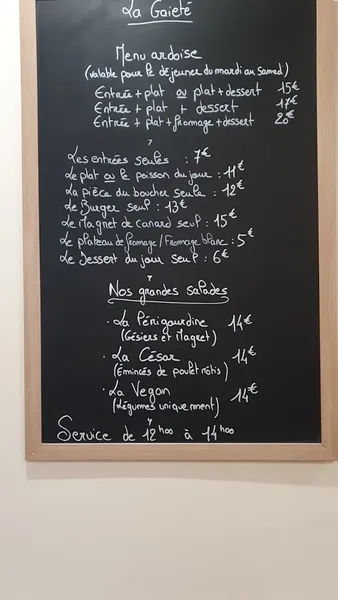 La Gaieté
Menu ardoise
(valable pour le déjeuner du mardi au samedi)
Entrée + plat ou plat + dessert 15€
Entrée + plat + dessert 17€
Entrée + plat + fromage + dessert 20€
Les entrées seules : 7€
Le plat ou le poisson du jour : 11€
La pièce du boucher seule : 12€
Le Burger seul : 13€
Le Magret de Canard seul : 15€
Le plateau de fromage / Fromage blanc : 5€
Le Dessert du jour seul : 6€
Nos grandes salades
· La Périgourdine 14€
(Gésiers et Magret)
· La César 14€
(Émincés de poulet rôtis)
· La Vegan 14€
(Légumes uniquement)
Service de 12h00 à 14h00